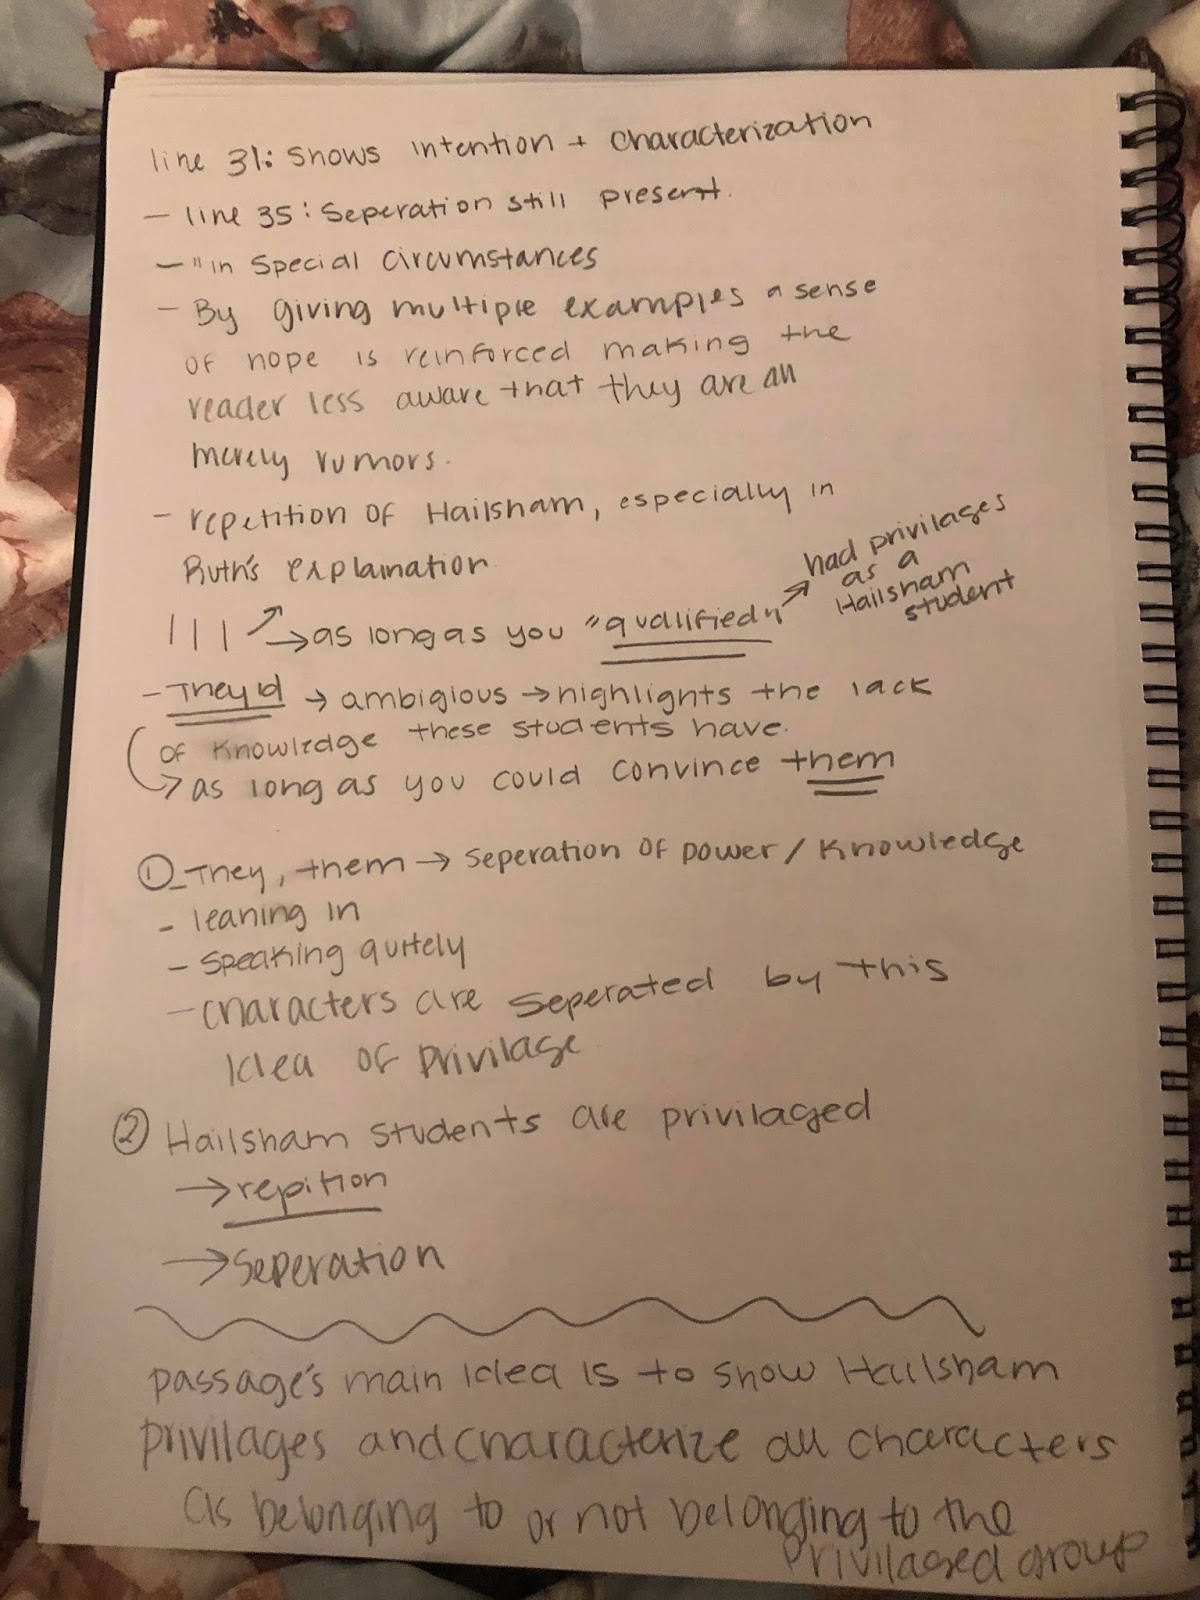 line 31: Shows intention + characterization
- line 35: Seperation still present.
- "in special circumstances
- By giving multiple examples a sense
of hope is reinforced making the
reader less aware that they are all
merely rumors.
- repetition of Hailsham, especially in
Ruth's explaination
||| ↗ → as long as you "qualified" ↗ had privilages
as a
Hailsham
student
- They'd → ambigious → highlights the lack
of knowledge these students have.
↳ as long as you could convince them
① - They, them → seperation of power / knowledge
- leaning in
- speaking quitely
- characters are seperated by this
idea of privilage
② Hailsham students are privilaged
→ repition
→ seperation
passage's main idea is to show Hailsham
privilages and characterize all characters
as belonging to or not belonging to the
privilaged group